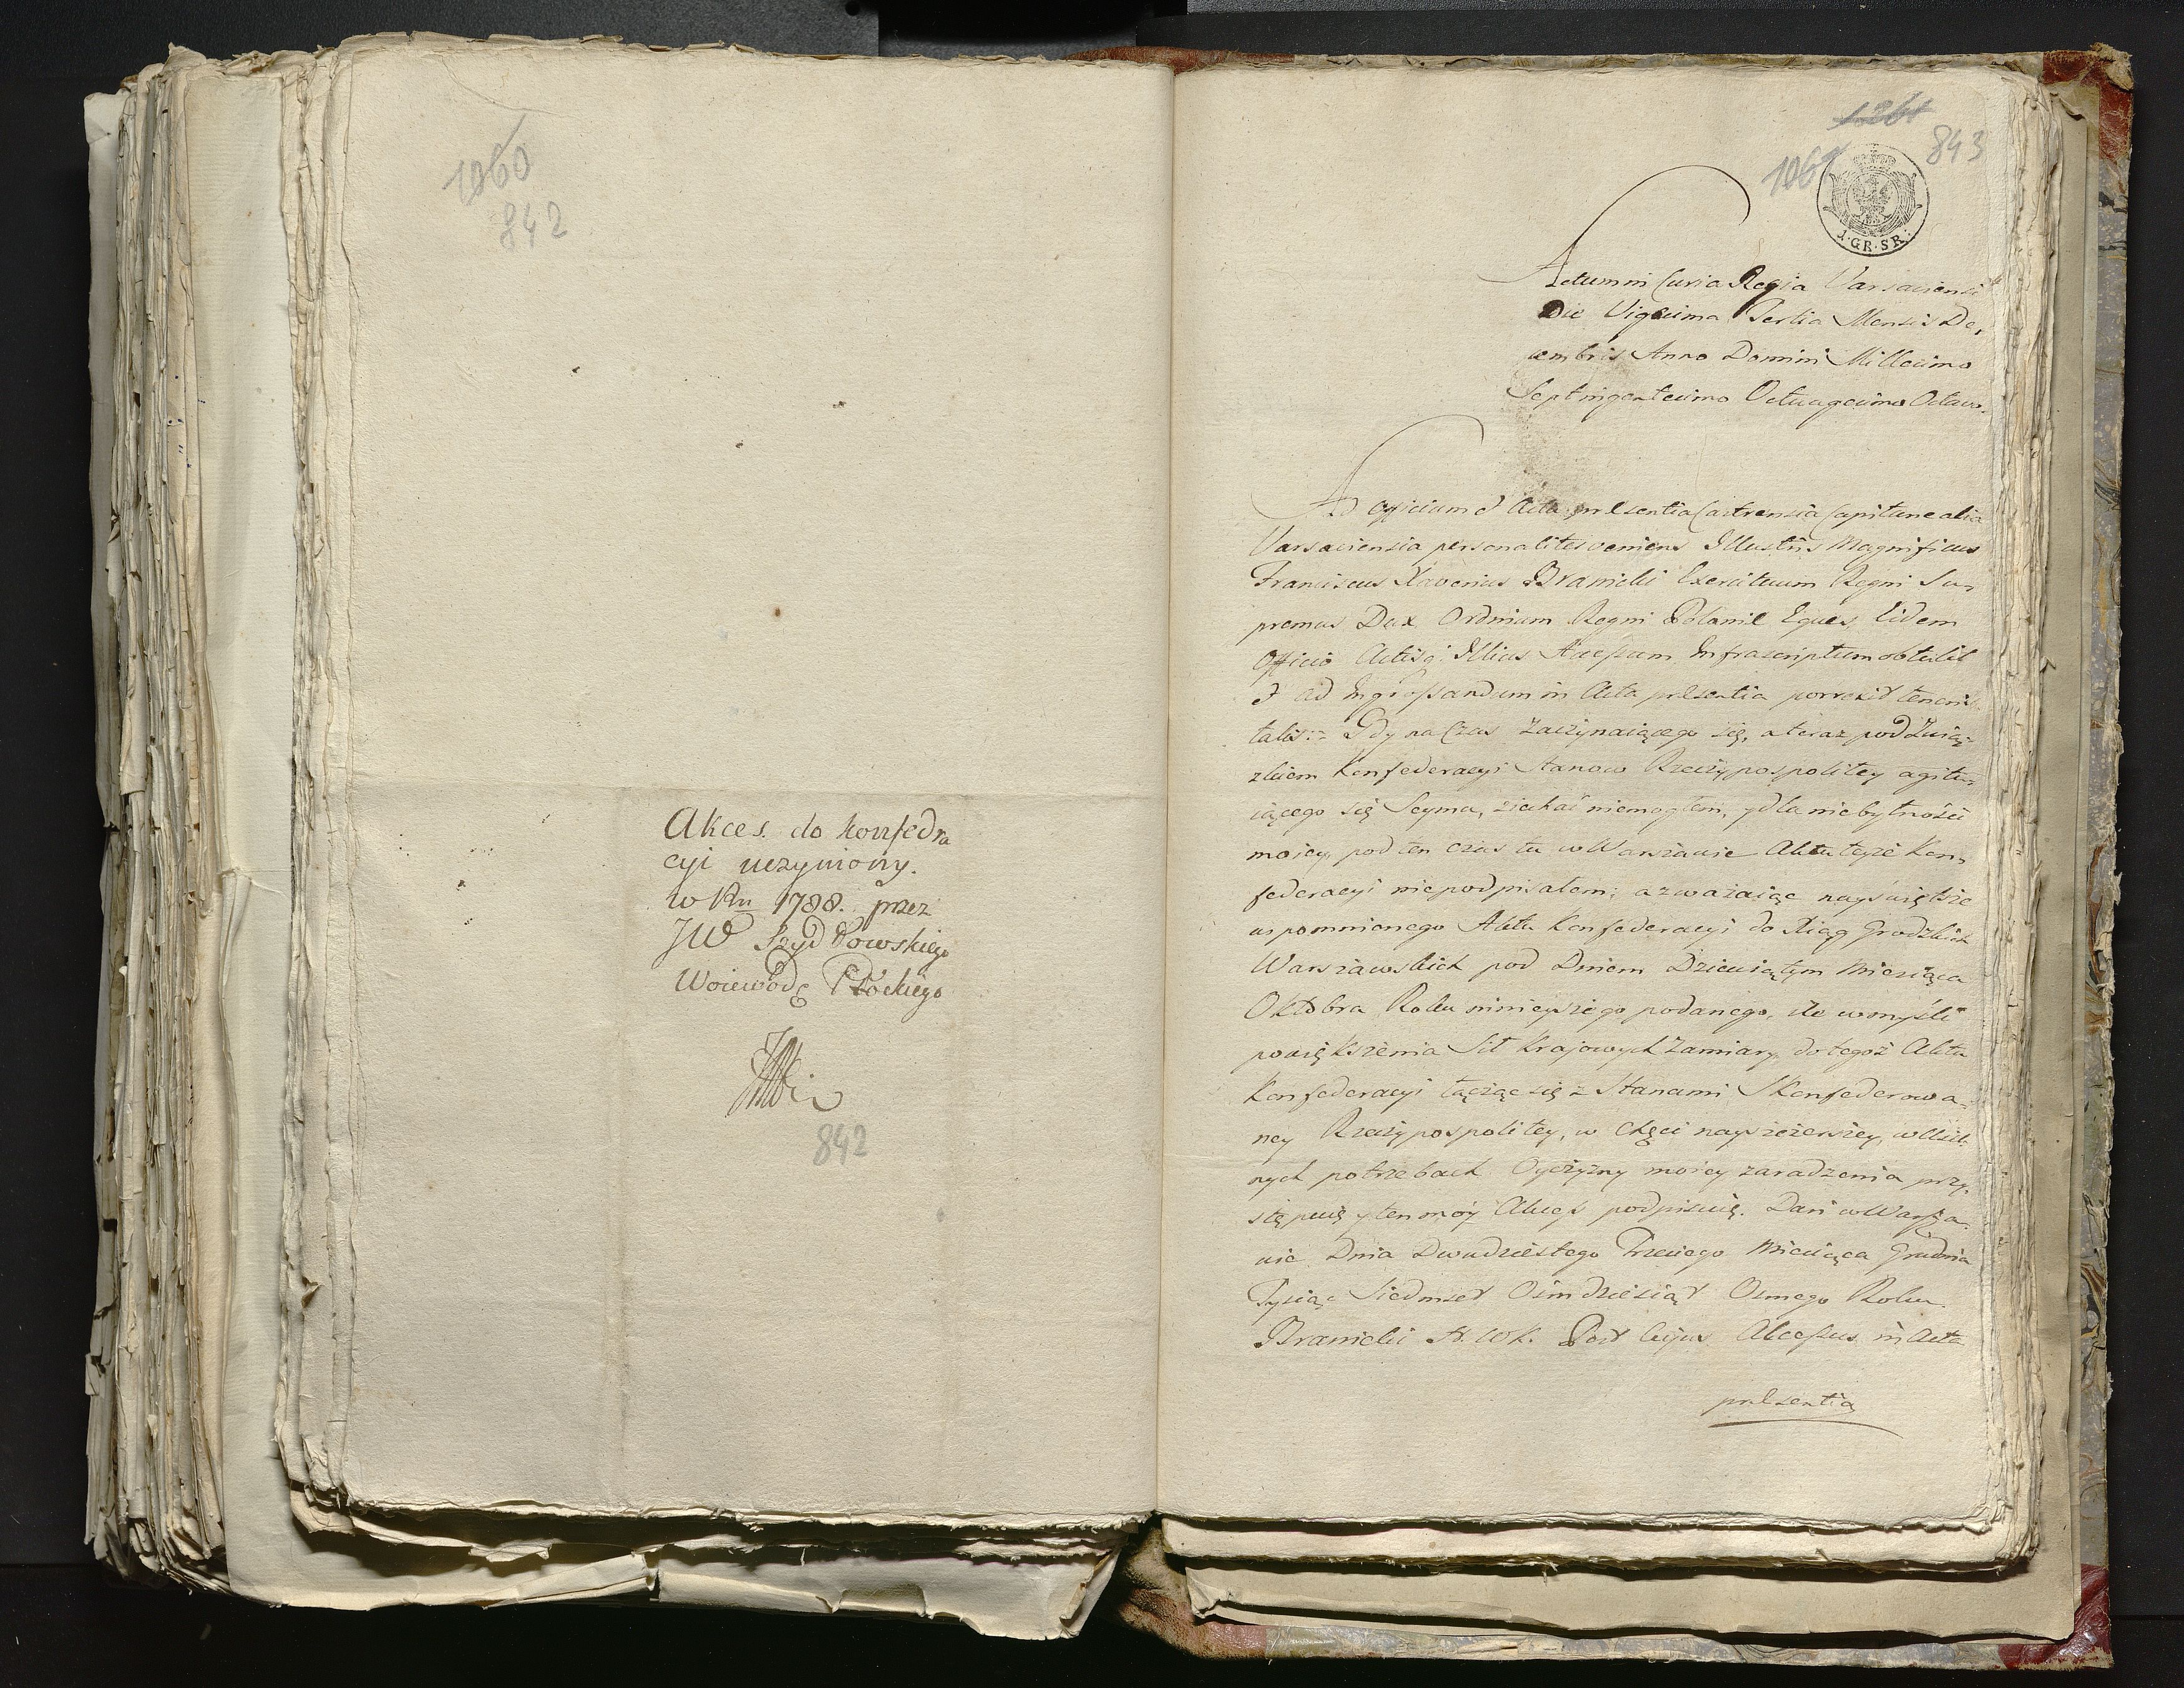 1060
842
Akces. do konfedra
cyi uczyniony.
w Ru 1788. przez
JW Szydłowskiego
Woiewodę Płockiego
842
843
1·GR·SR·
Actum in Curia Regia Varsaviensi
Die Vigesima Tertia Mensis De„
cembris Anno Domini Millesimo
Septingentesimo Octuagesimo Octavo.
Ad Officium et Acta præsentia Castrensia Capitanealia
Varsaviensia personaliter veniens Illustris Magnificus
Franciscus Xaverius Branicki Exercituum Regni Su„
premus Dux Ordinum Regni Poloniæ Eques, Eidem
Officio Actisq; Illius Accessum Infrascriptum obtulit
et ad Ingrossandum in Acta præsentia porrexit tenoris
talis:= Gdy na Czas Zaczynaiącego się, a teraz pod Zwią„
zkiem Konfederacyi Stanow Rzeczypospolitey agitu„
iącego się Seymu, ziechać niemogłem, y dla niebytności
moiey, pod ten czas tu w Warszawie Aktu teyże Kon„
federacyi niepodpisałem; a zważaiąc nayświętsze
wspomnionego Aktu Konfederacyi do Xiąg Grodzkich
Warszawskich pod Dniem Dziewiątym Miesiąca
Oktobra Roku ninieyszego podanego, ile w myśli
powiększenia Sił Krajowych Zamiary, do tegoż Aktu
Konfederacyi łącząc się z Stanami Skonfederowa„
ney Rzeczypospolitey, w Chęci nayszczerszey, w
nych potrzebach Oyczyzny moiey zaradzenia przy„
stępuię y ten móy Akces podpisuię. Dan w Warsza„
wie Dnia Dwudziestego Trzeciego Miesiąca Grudnia
Tysiąc Siedmset Osmdziesiąt Osmego Roku.
Branicki H. W K. Post Cujus Accessus in Acta
præsentia